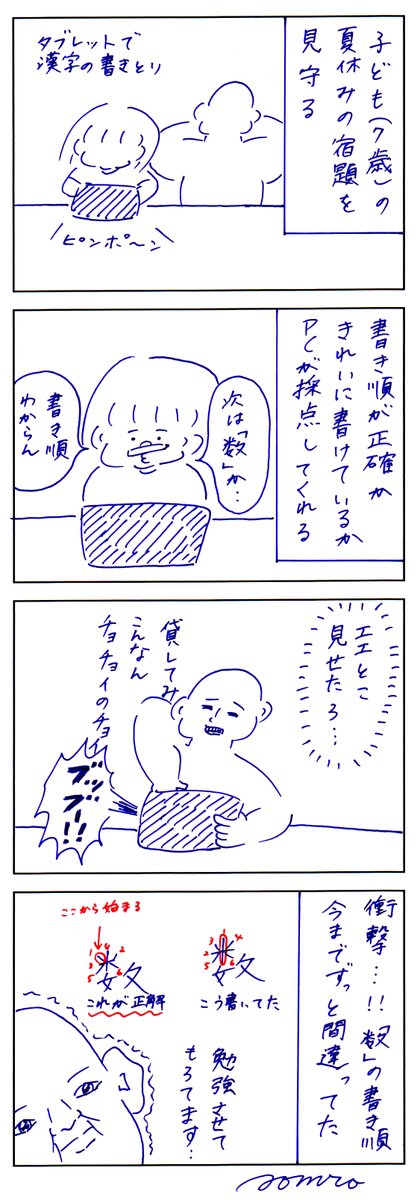 子ども(7歳)の
夏休みの宿題を
見守る
タブレットで
漢字の書きとり
ピンポ〜ン
書き順が正確か
きれいに書けているか
PCが採点してくれる
次は「数」か…
書き順
わからん
エエとこ
見せたろ…
貸してみ
こんなん
チョチョイのチョイ
ブッブー!!
衝撃…!!「数」の書き順
今までずっと間違ってた
こう書いてた
ここから始まる
これが正解
勉強させて
もろてます…